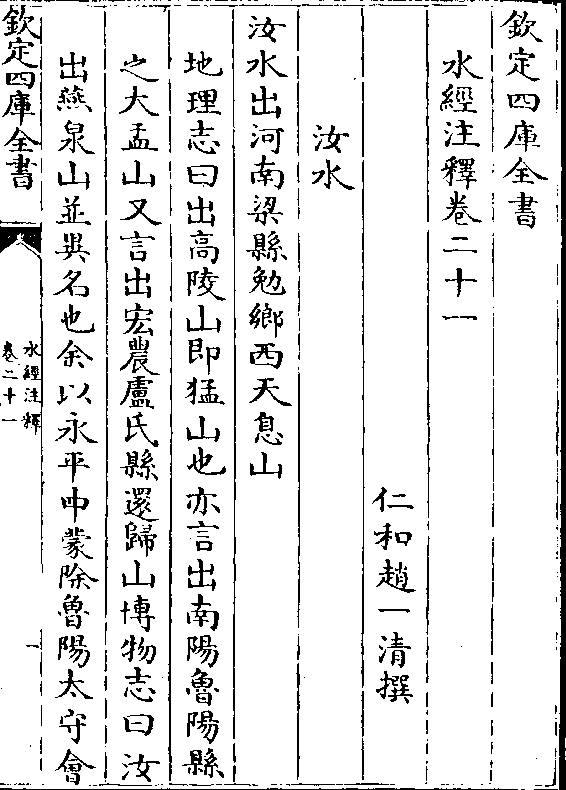 欽定四庫全書
水經注釋卷二十一
仁和趙一清撰
汝水
汝水出河南梁縣勉鄉西天息山
地理志曰出高陵山即猛山也亦言出南陽魯陽縣
之大盂山又言出宏農盧氏縣還歸山博物志曰汝
出燕泉山並異名也余以永平中蒙除魯陽太守會
欽定四庫全書
水經注釋
卷二十一
一